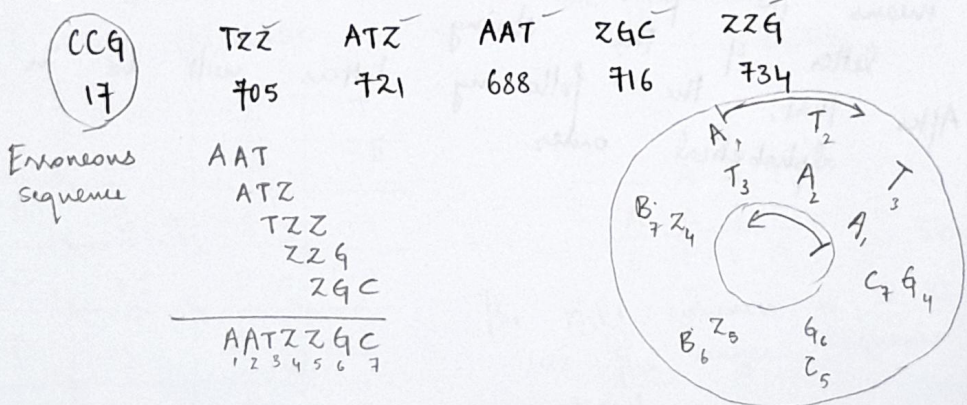 CCG TZZ ATZ AAT ZGC ZZG
17 705 721 688 716 734
Erroneous sequence
AAT
ATZ
TZZ
ZZG
ZGC
AATZZGC
1 2 3 4 5 6 7
A1 T2
T3 A2 T3
B7 Z4 A1
C7 G4
B6 Z5 G6
C5